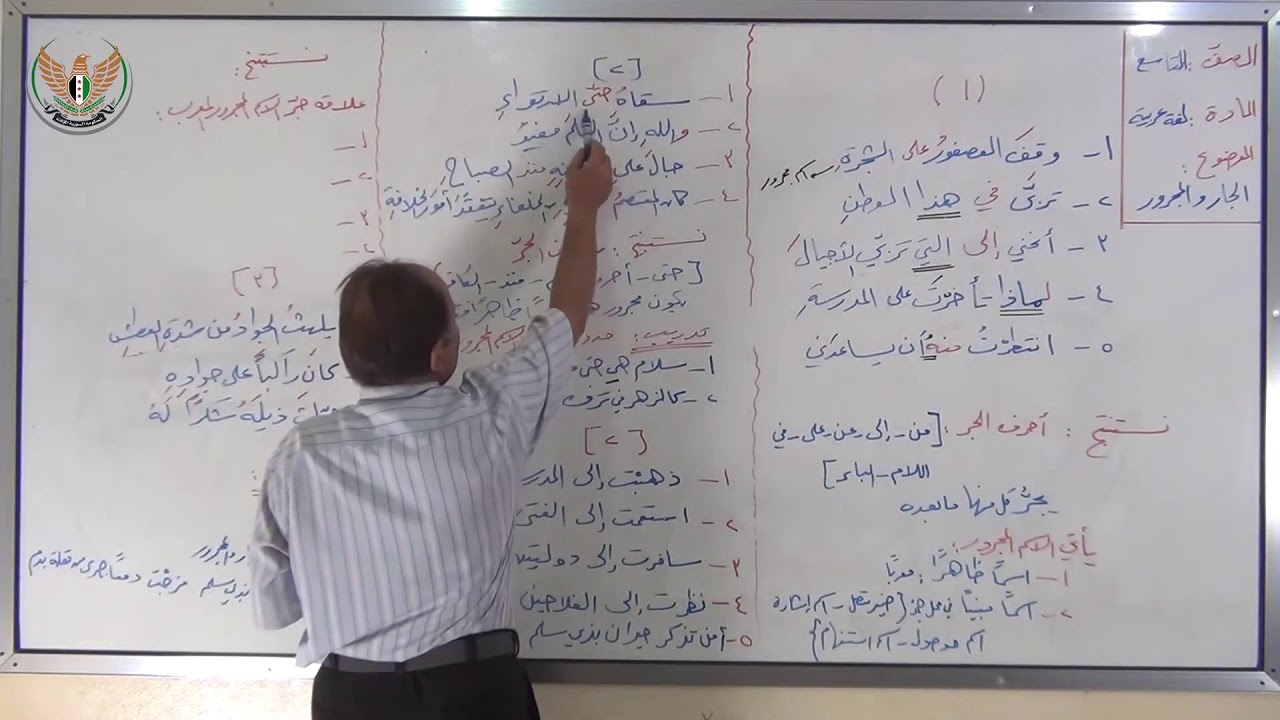 الصف : التاسع
المادة : لغة عربية
الموضوع :
الجار و المجرور
(١)
١- وقفَ العصفورُ على الشجرةِ ← اسم مجرور
٢- تربَّى في هذا الوطنِ
٣- أنحني إلى التي تربّي الأجيالَ
٤- لماذا تأخرْتَ على المدرسةِ
٥- انتظرْتُ منهُ أن يساعدَني
نستنتج : أحرف الجر : [من - إلى - عن - على - في
اللام - الباء]
يجرُّ كل منها ما بعده
يأتي الاسم المجرور :
١- اسمًا ظاهرًا : معربًا
٢- اسمًا مبنيًا في محل جر {ضمير متصل - اسم إشارة
اسم موصول - اسم استفهام}
[٢]
١- سقاهُ حتى الارتواءِ
٢- واللهِ إنَّ العلمَ مفيدٌ
٣- جالَ على منذ الصباحِ
٤- كان المعتصمُ الخلفاءِ يتفقدُ أمورَ الخلافةِ
نستنتج : الجرّ
[حتى - أحرف - منذ - الكاف
يكون مجرور ظاهرًا
تدريب : حدد الاسم المجرور
١- سلام هي حتى
٢- كالزهر في ترف
[٢]
١- ذهبْت إلى المدر
٢- استمعت إلى الفتى
٣- سافرت إلى دولتين
٤- نظرت إلى الفلاحين
٥- أمن تذكر جيران بذي سلم
نستنتج :
علامة جرّ الاسم المجرور المعرب :
١-
٢-
٣-
٤-
[٣]
يلهثُ الجوادُ من شدةِ العطشِ
كانَ راكباً على جوادِهِ
ذيلَهُ شكرًا لَهُ
و المجرور
بذي سلم مزجْت دمعًا جرى من مقلة بدم